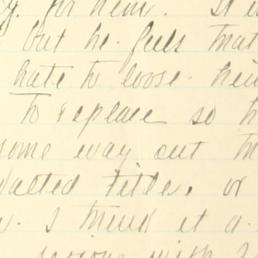 for him. It is
but he feels that
hate to loose
to replace so h
some way out
title, or
I think it a
with